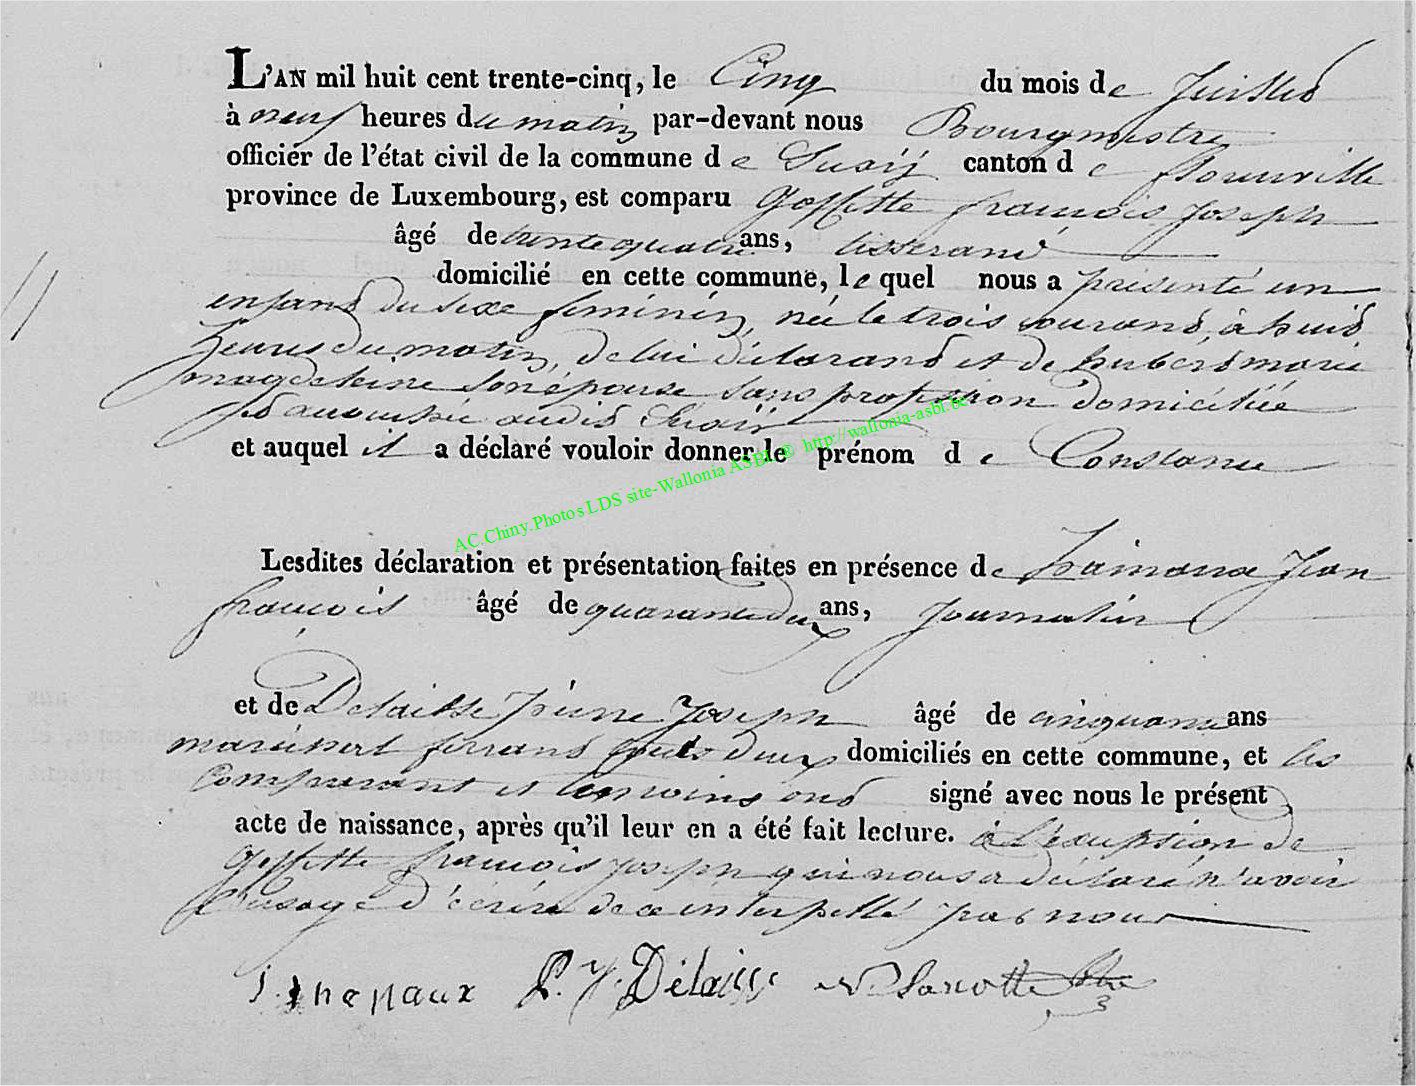 L'AN mil huit cent trente-cinq, le Cinq du mois de Juillet
à neuf heures du matin par-devant nous Bourgmestre
officier de l'état civil de la commune de Suxÿ canton de florenville
province de Luxembourg, est comparu Goffette françois Joseph
âgé de trente quatre ans, tisserand
domicilié en cette commune, lequel nous a présenté un
enfant du sexe feminin, née le trois courant, à huit
heures du matin, de lui déclarant et de hubert marie
magdeleine son épouse sans profession domiciliée
audit Suxÿ
et auquel il a déclaré vouloir donner le prénom de Constance
AC.Chiny.Photos LDS site-Wallonia ASBL ® http://wallonia-asbl.be
Lesdites déclaration et présentation faites en présence de Jean
françois âgé de quarante deux ans, Journalier
et de Delaisse pierre Joseph âgé de cinquante ans
marechal ferrant tous deux domiciliés en cette commune, et les
Comparant et temoins ont signé avec nous le présent
acte de naissance, après qu'il leur en a été fait lecture. à l'exception de
Goffette françois joseph qui nous a déclaré n'avoir
l'usage d'écrire de ce interpellé par nous
P. J. Délaisse